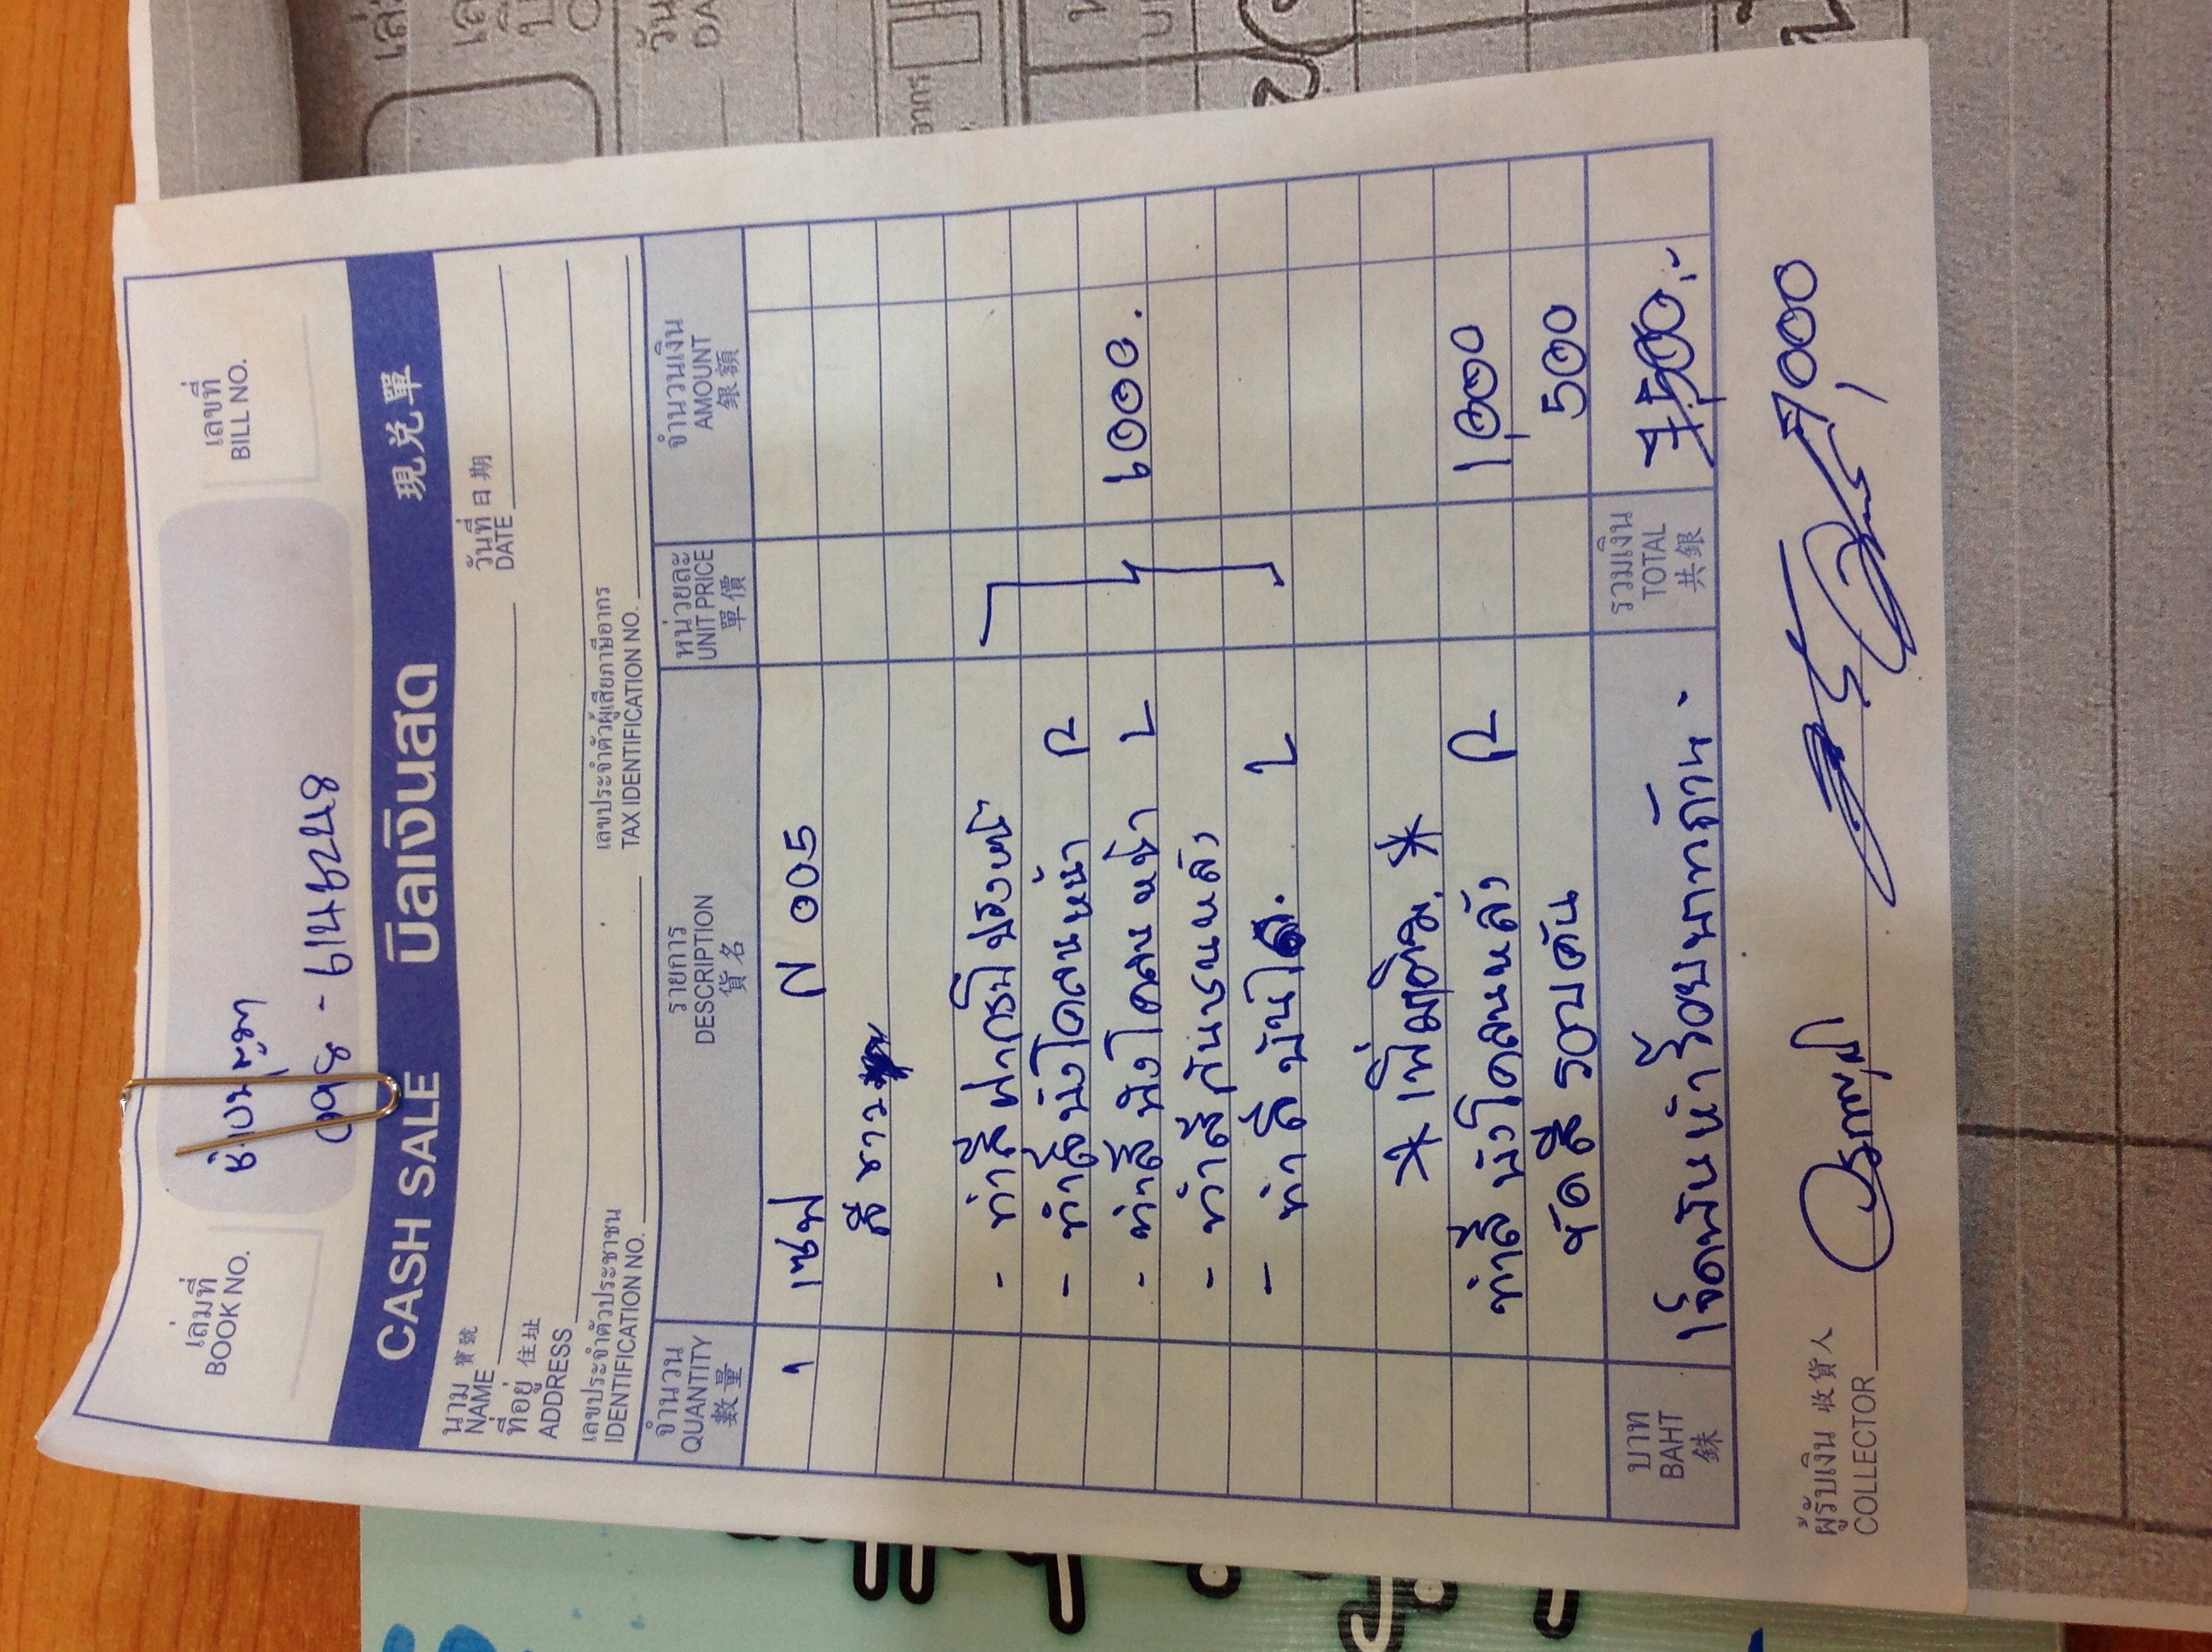 เล่มที่
BOOK NO.
เลขที่
BILL NO.
ช่างบุญมา
CASH SALE บิลเงินสด 現兌單
นาม 寶號
NAME
วันที่ 日期
DATE
ที่อยู่ 住址
ADDRESS
เลขประจำตัวประชาชน
IDENTIFICATION NO.
เลขประจำตัวผู้เสียภาษีอากร
TAX IDENTIFICATION NO.
จำนวน รายการ หน่วยละ จำนวนเงิน
QUANTITY DESCRIPTION UNIT PRICE AMOUNT
數量 貨名 單價 銀額
1 เซฟ N 005
สีขาว
- ทำสีฝากระโปรงหน้า
- ทำสีบังโคลนหน้า R
- ทำสีบังโคลนหน้า L 6000.
- ทำสีกันชนหลัง
- ทำสีบันได. L
* เพิ่มเติม. *
ทำสีบังโคลนหลัง R 1,000
ขัดสีรอบคัน 500
บาท
BAHT
銖
เจ็ดพันห้าร้อยบาทถ้วน.
รวมเงิน
TOTAL
共銀
7,500.-
7,000
ผู้รับเงิน 收貨人
COLLECTOR